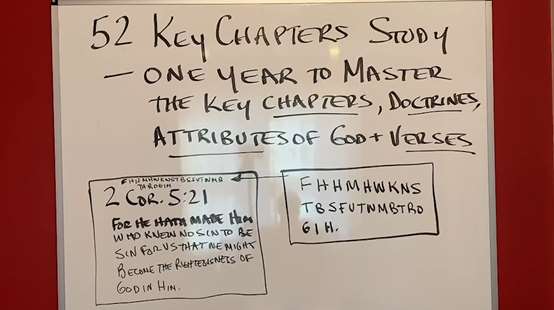 52 KEY CHAPTERS STUDY
— ONE YEAR TO MASTER
THE KEY CHAPTERS, DOCTRINES,
ATTRIBUTES OF GOD + VERSES
2 COR. 5:21
FOR HE HATH MADE HIM
WHO KNEW NO SIN TO BE
SIN FOR US THAT WE MIGHT
BECOME THE RIGHTEOUSNESS OF
GOD IN HIM.
FHHMHWKNS
TBSFUTNMBTRO
GIH.